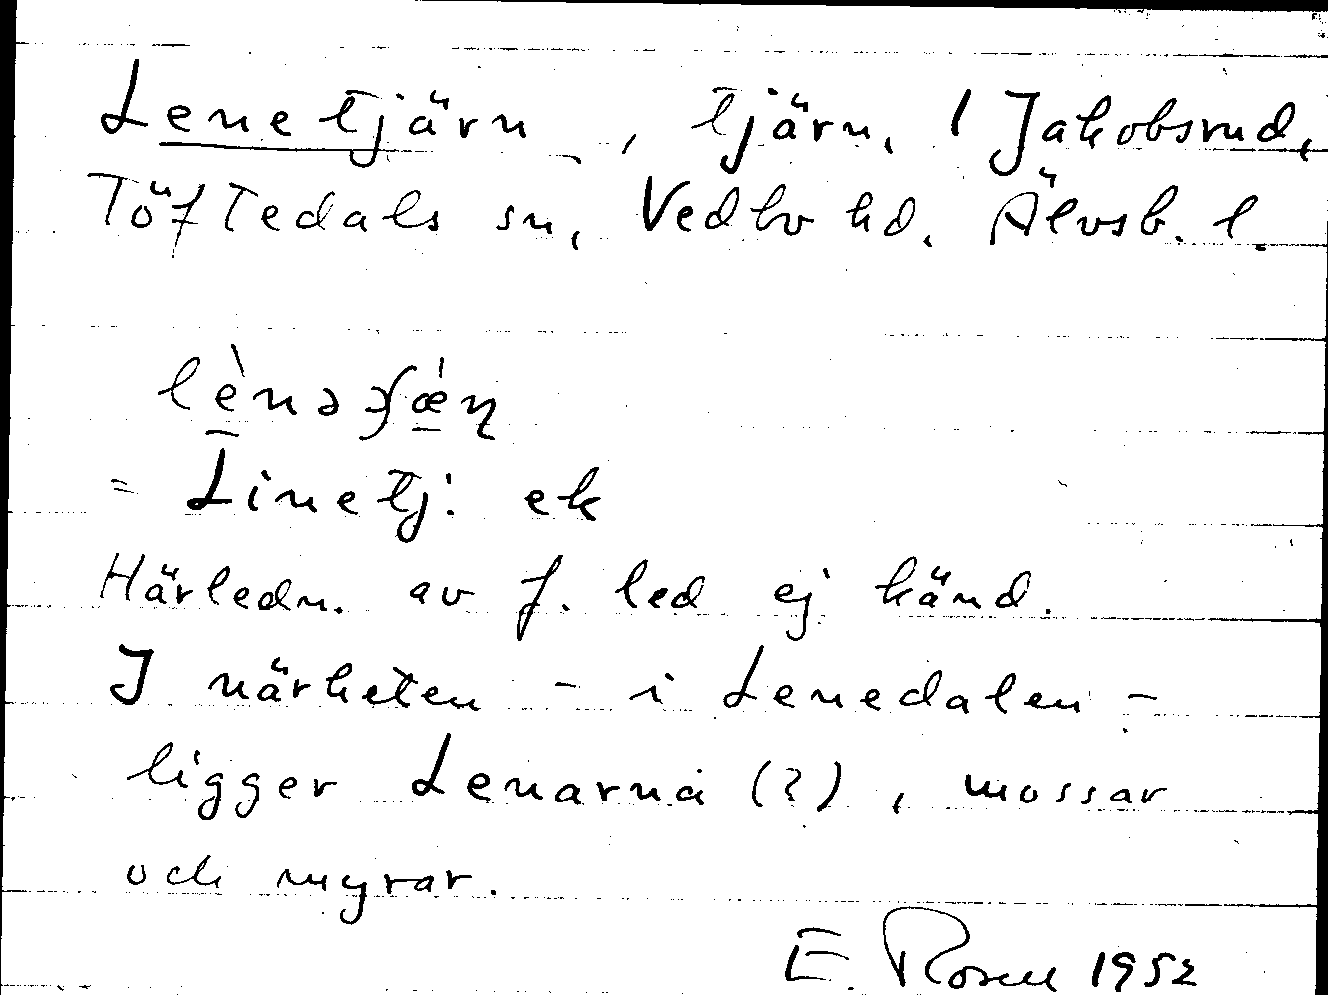 Lenetjärn, tjärn, 1 Jakobsrud,
Töftedals sn, Vedbo hd. Älvsb. l.
= Linetj: ek
Härledn. av f. led ej känd.
I närheten - i Lenedalen -
ligger Lenarna (?), mossar
och myrar.
E. Rosen 1952